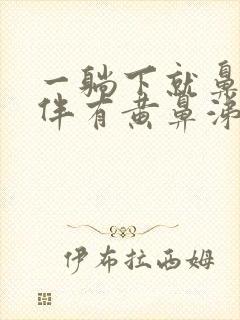 一躺下就鼻
伴有黄鼻涕
伊布拉西姆